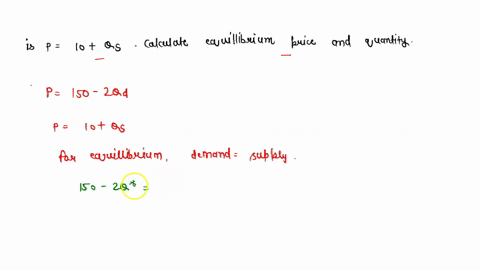 is P = 10 + QS . Calculate equillibrium price and quantity.
P = 150 - 2Qd
P = 10 + QS
for equillibrium, demand = supply.
150 - 2Q* =